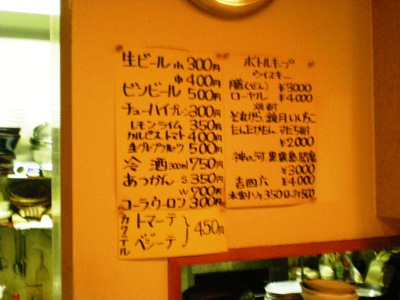 生ビール 小 300円
中 400円
ビンビール 500円
チューハイ プレーン 300円
レモンライム 350円
カルピス トマト 400円
生グレフルーツ 500円
冷酒 300ml 750円
あつかん S 350円
W 700円
コーラ ウーロン 300円
カクテル
トマーテ
ベジーテ
450円
ボトルキープ
ウイスキー
膳(ぜん) ¥3000
ローヤル ¥4000
焼酎
鏡月
¥2000
神の河 黒霧島
¥3000
吉四六 ¥4000